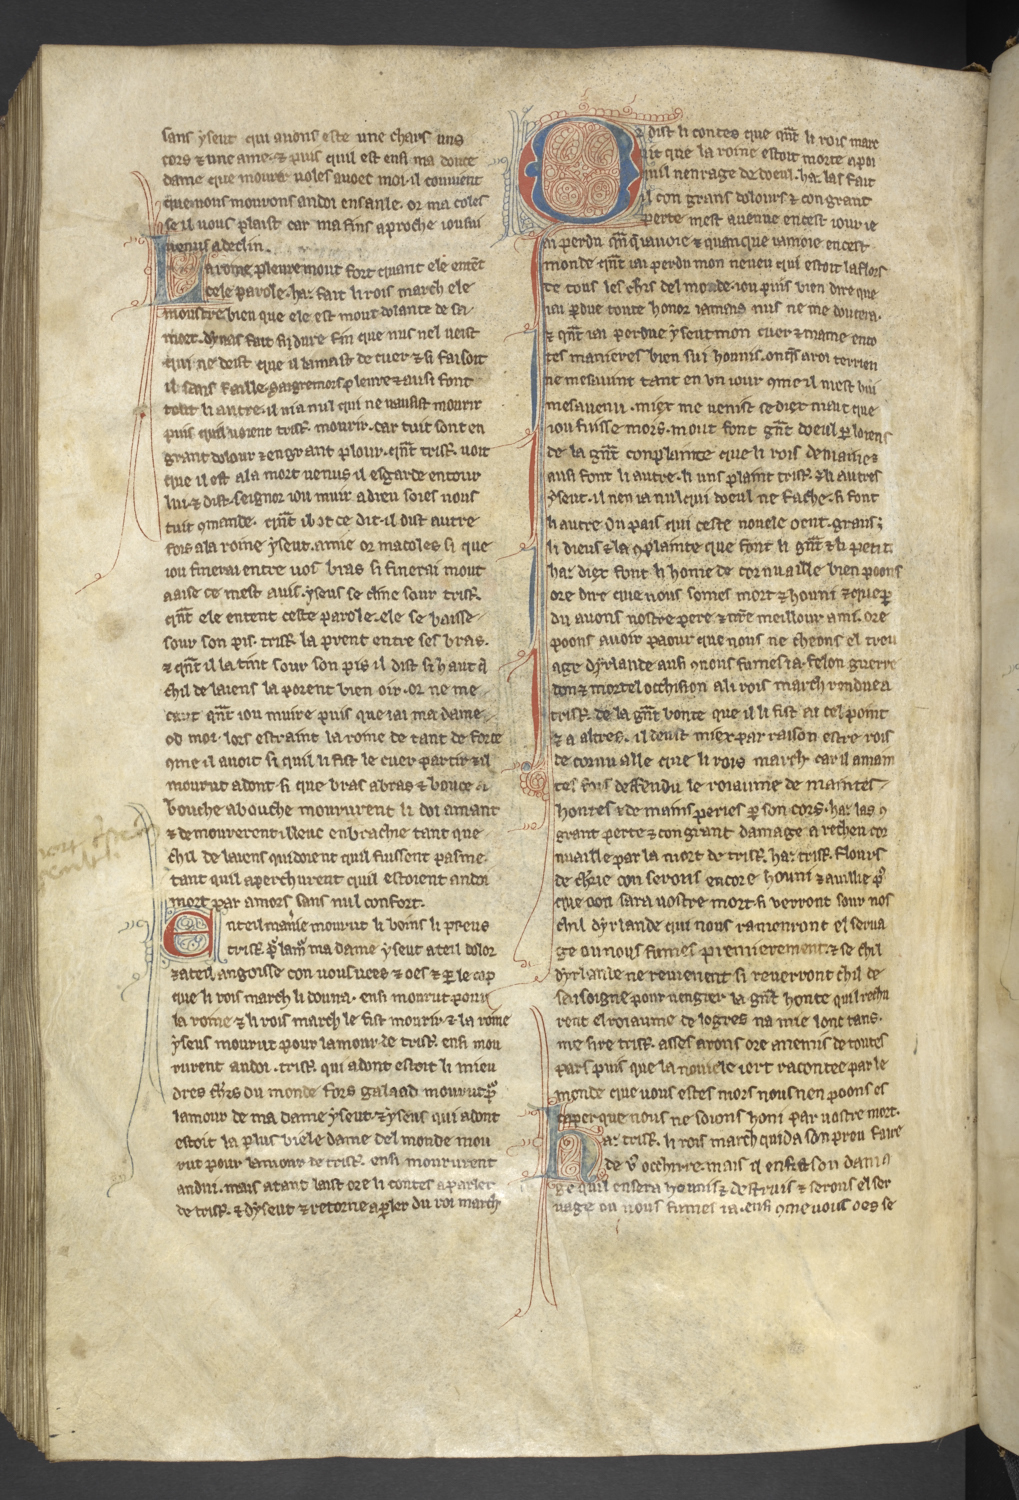 sans yseut qui auons este une chars uns
cors ⁊ une ame ⁊ puis quil est ensi ma douce
dame que mourir uoles auoec moi il couuient
que nous mourons andoi ensanle. or ma coles
se il uous plaist car ma fins aproche iou sui
uenus a declin.
La roine pleure mout fort quant ele entēt
cele parole. ha: fait li rois march ele
moustre bien que ele est mout dolante de sa
mort. dynas fait si dure fin que nus nel ueist
qui ne deist que il lamast de cuer ⁊ si faisoit
il sans faille. gaigremors pleure ⁊ ausi font
tout li autre. il ni a nul qui ne uausist mourir
puis quil uoient trisī. mourir. car tuit sont en
grant dolour ⁊ en grant plour. qn̄t trisī. uoit
que il est a la mort uenus il esgarde entour
lui ⁊ dist. seignor iou muir a dieu soies uous
tuit ꝯmande. qn̄t il ot ce dit. il dist autre
fois a la roine yseut. amie or macoles si que
iou finerai entre uos bras si finerai mout
aaise ce mest auis. yseus se cline sour trisī.
qn̄t ele entent ceste parole. ele se baisse
sour son pis. trisī. la prent entre ses bras.
⁊ qn̄t il la tint sour son pis il dist si haut q̄
chil de laiens la porent bien oir. or ne me
caut qn̄t iou muire puis que iai ma dame
od moi. lors estraint la roine de tant de force
ꝯme il auoit si quil li fist le cuer partir ⁊ il
mourut adont si que bras a bras ⁊ bouce a
bouche a bouche moururent li doi amant
⁊ demourerent illeuc enbrachie tant que
chil de laiens quidoient quil fuissent pasme.
tant quil aperchurent quil estoient andoi
mort par amors sans nul confort.
En teil maniere mourut li boins li preus
trisī. pr̄ lamr̄ ma dame yseut a teil dolor
⁊ a teil angousse con uous uees ⁊ oes ⁊ ꝑ le cop
que li rois march li douna. ensi mourut pour
la roine ⁊ li rois march le fist mourir ⁊ la roine
yseus mourut pour lamour de trisī. ensi mou
rurent andoi. trisī. qui adont estoit li mieu
dres chr̄s du monde fors galaad mourut pr̄
lamour de ma dame yseut ⁊ yseus qui adont
estoit la plus biele dame del monde mou
rut pour lamour de trisī. ensi moururent
andui. mais atant laist ore li contes a parler
de trisī. ⁊ dyseut ⁊ retorne a ꝑler du roi march
Or dist li contes que qn̄t li rois marc
uit que la roine estoit morte a poi
quil nenrage de doeul. ha: las fait
il con grans dolours ⁊ con grant
perte mest auenue en cest iour ie
ai perdu qn̄q̄ iauoie ⁊ quanque iamoie en cest
monde qn̄t iai perdu mon neueu qui estoit la flors
de tous les chr̄s del monde. iou puis bien dire que
iai perdue toute honor iamais nus ne me doutera.
⁊ qn̄t iai perdue yseut mon cuer ⁊ mame en to
tes manieres bien sui hounis. onq̄s a roi terrien
ne mesauint tant en vn iour ꝯme il mest hui
mesauenu. miex me uenist se diex maut que
iou fuisse mors. mout font gn̄t doeul ꝑ loiens
de la gn̄t conplainte que li rois demaine.
ausi font li autre. li uns plaint trisī. ⁊ li autres
yseut. il nen ia nul qui doeul ne fache. si font
li autre du pais qui ceste nouele oent. grans
li dieus ⁊ la ꝯplainte que font li gn̄t ⁊ li petit.
ha: diex font li home de cornuaille bien poons
ore dire que nous somes mort ⁊ houni ⁊ que ꝑ
du auons nostre pere ⁊ nr̄e meillour ami. ore
poons auoir paour que nous ne cheons el treu
age dyrlande ausi ꝯ nous fumes ia. felon guerre
don ⁊ mortel occhision a li rois march rendue a
trisī. de la gn̄t bonte que il li fist a icel point
⁊ a altres. il deuist miex par raison estre rois
de cornualle que li rois march. car il a maintes
fois deffendu le roiaume de maintes
hontes ⁊ de mains peries ꝑ son cors. ha: las ꝯ
grant perte ⁊ con grant damage a recheu cor
nuaille par la mort de trisī. ha: trisī. flours
de chr̄ie con serons encore houni ⁊ auillie pr̄
que con sara uostre mort. si uerront sour nos
chil dyrlande qui nous ramenront el serua
ge ou nous fumes premierement. ⁊ se chil
dyrlande ne reuienent si reuerront chil de
sessoigne pour uengier la gn̄t honte quil rechu
rent el roiaume de logres na mie lonc tans.
me sire trisī. asses arons ore anemis de toutes
pars puis que la nouiele iert racontee par le
monde que vous estes mors nous nen poons es
caper que nous ne soions honi par uostre mort.
Ha: trisī. li rois march quida son preu faire
de vr̄ occhirre. mais il en fist son dama
ge quil en sera hounis ⁊ destruis ⁊ serons el ser
uage ou nous fumes ia. ensi ꝯme uous oes se